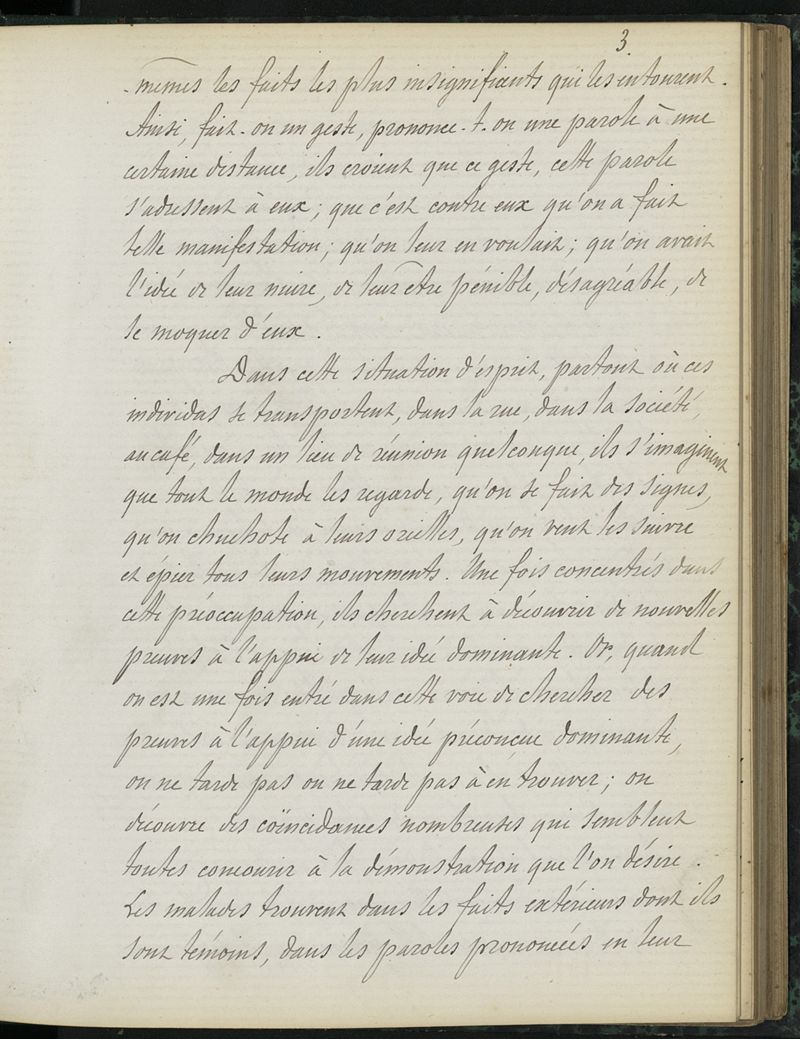 3
-mêmes les faits les plus insignifiants qui les entourent.
Ainsi, fait-on un geste, prononce-t-on une parole à une
certaine distance, ils croient que ce geste, cette parole
s'adressent à eux ; que c'est contre eux qu'on a fait
telle manifestation ; qu'on leur en voulait ; qu'on avait
l'idée de leur nuire, de leur être pénible, désagréable, de
se moquer d'eux.
Dans cette situation d'esprit, partout où ces
individus se transportent, dans la rue, dans la société,
au café, dans un lieu de réunion quelconque, ils s'imaginent
que tout le monde les regarde, qu'on se fait des signes,
qu'on chuchote à leurs oreilles, qu'on veut les suivre
et épier tous leurs mouvements. Une fois concentrés dans
cette préoccupation, ils cherchent à découvrir de nouvelles
preuves à l'appui de leur idée dominante. Or, quand
on est une fois entré dans cette voie de chercher des
preuves à l'appui d'une idée préconçue dominante,
on ne tarde pas on ne tarde pas à en trouver ; on
découvre des coïncidances nombreuses qui semblent
toutes concourir à la démonstration que l'on désire.
Les malades trouvent dans les faits extérieurs dont ils
sont témoins, dans les paroles prononcées en leur